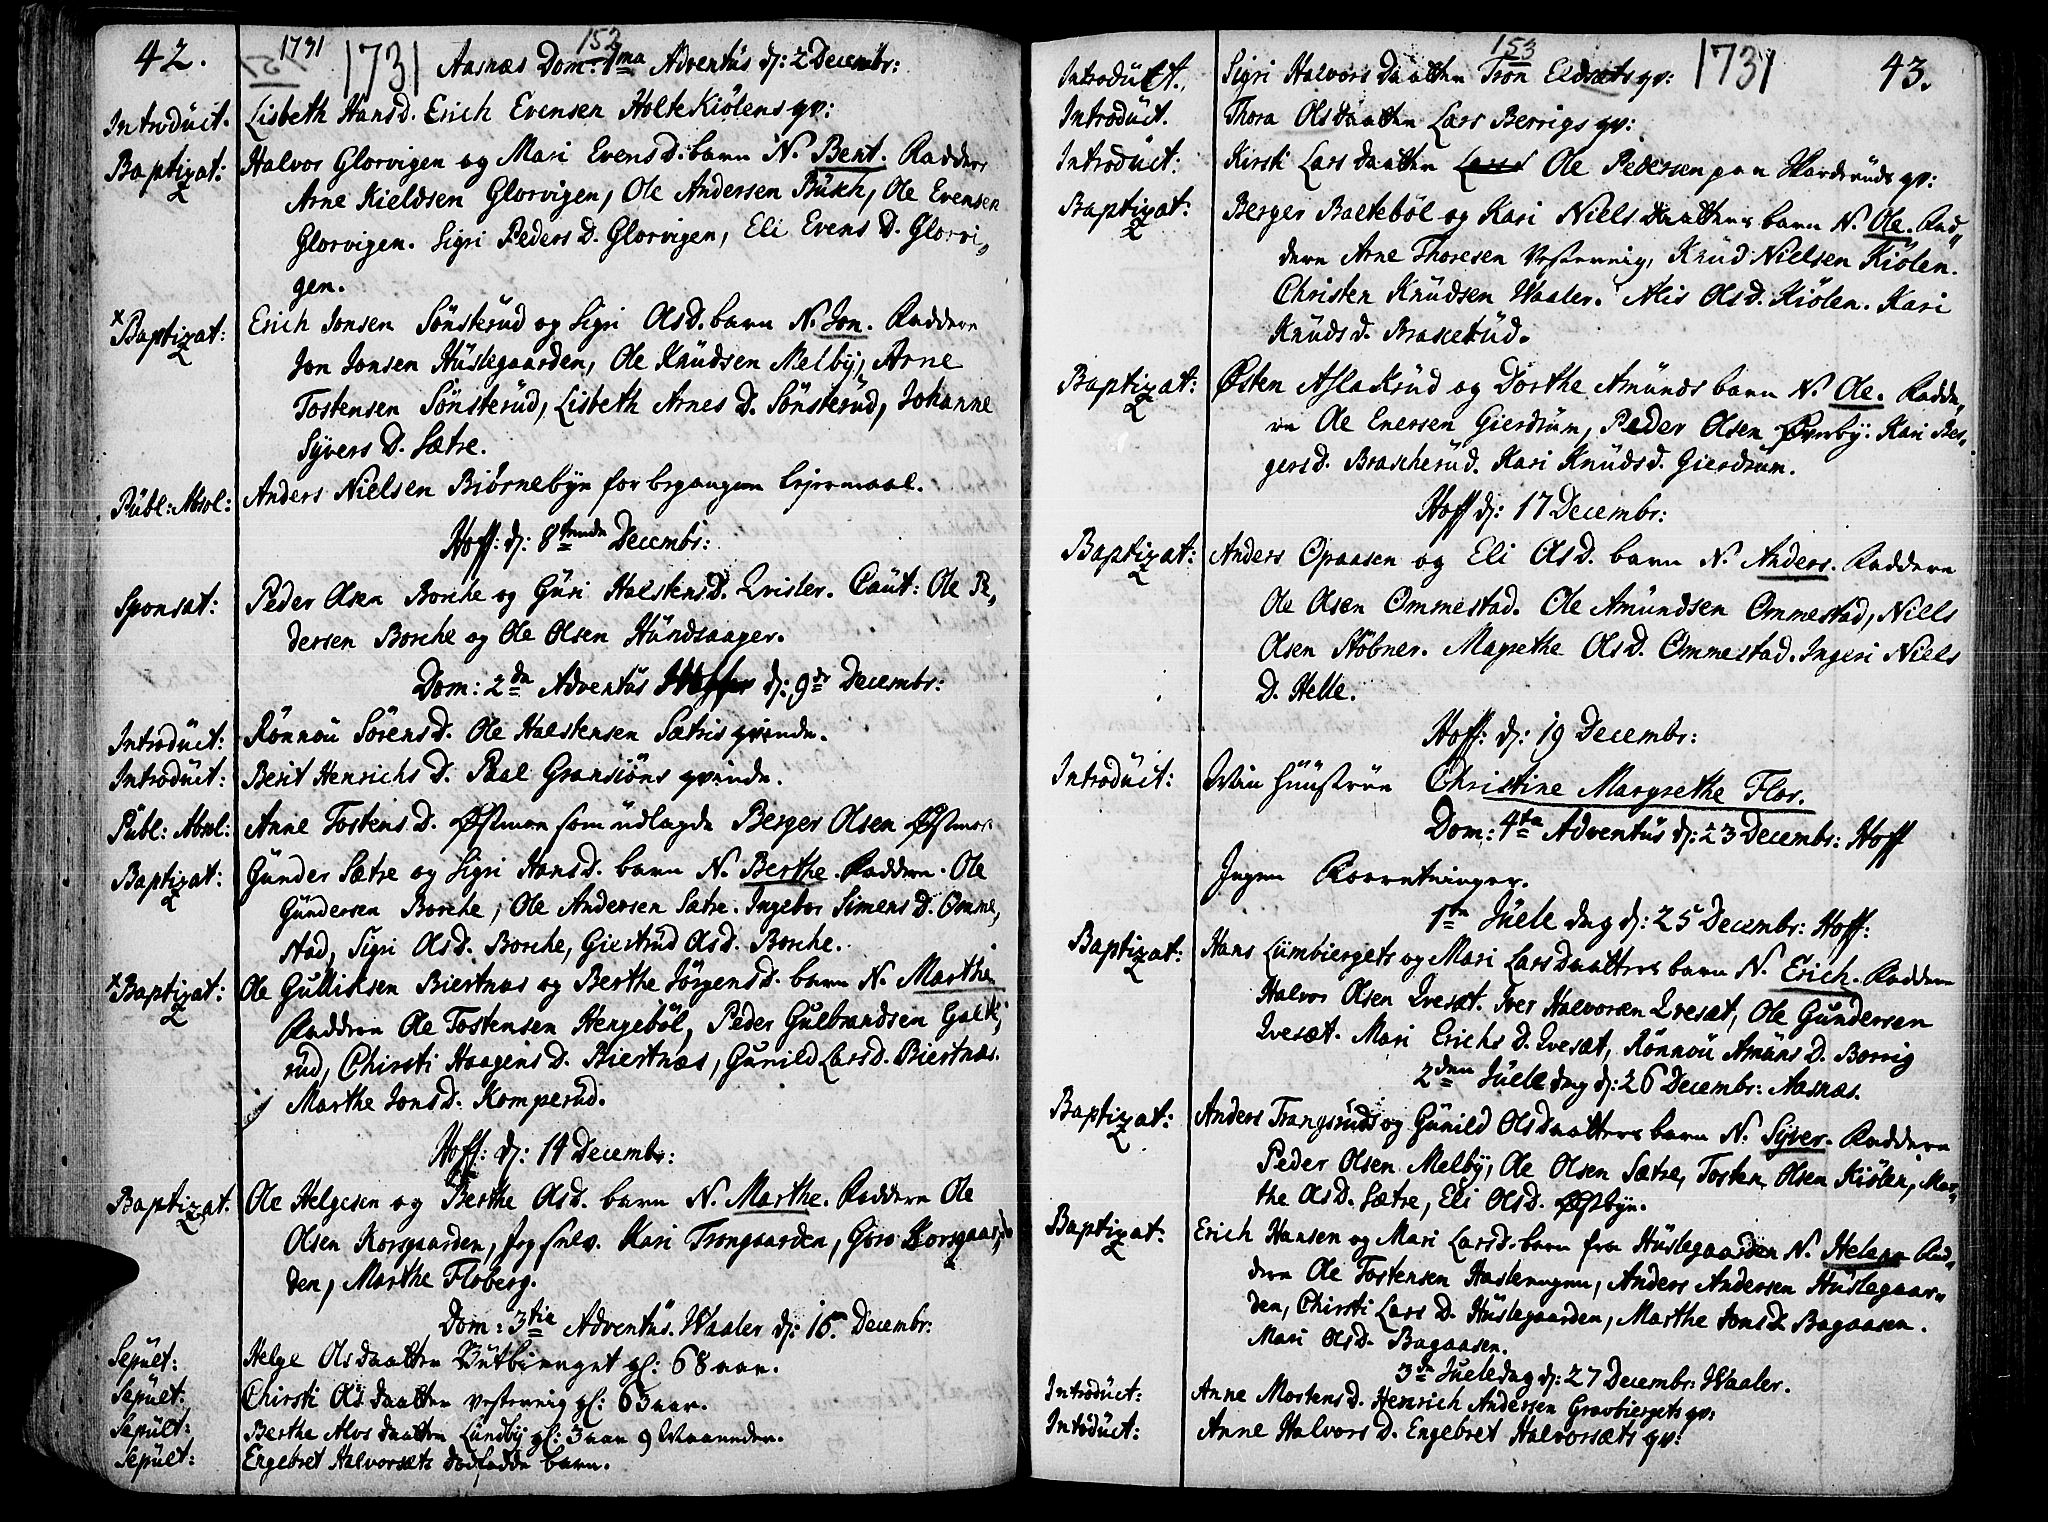 42.
1731
1731
152
Aasnæs Dom: 1ma Adventüs d: 2 Decembr:
Introdüct. Lisbeth Hansd. Erich Evensen HolteKiölens qv:
Baptizat: Halvor Glorvigen og Mari Evens D. barn N. Bent. Faddere
Arne Kieldsen Glorvigen, Ole Andersen Büsch, Ole Evensen
Glorvigen. Sigri Peders D. Glorvigen, Eli Evens D. Glorvi-
gen.
x Baptizat: Erich Jonsen Sönsterüd og Sigri OlsD. barn N. Jon. Faddere
Jon Jonsen Hüslegaarden, Ole Knüdsen Melby, Arne
Tostensen Sönsterüd, Lisbeth Arnes D. Sönsterüd, Johanne
Syvers D. Sætre.
Pübl: Absol: Anders Nielsen Biørnebye for begangen Lejermaal.
Hoff: d: 8tende Decembr:
Sponsat: Peder Olsen Borche og Güri HalstensD. Qvisler. Caüt: Ole Pe-
dersen Borche og Ole Olsen Hündsaager.
Dom: 2da Adventüs d: 9de Decembr:
Introdüct: Rönnoü SörensD. Ole Halstensen Sætris qvinde.
Introdüct: Berit Henrichs D. Paal Gransiöns qvinde.
Pübl: Absol: Anne Tostens D. Østmoe som üdlagde Berger Olsen Østmoe.
Baptizat: Günder Sætre og Sigri HansD. barn N. Berthe. Faddere. Ole
Gündersen Borche, Ole Andersen Sætre. Ingebor Simens D. Omme-
stad, Sigri OlsD. Borche, Giertrüd OlsD. Borche.
x Baptizat: Ole Gulliksen Biertnæs og Berthe JörgensD. barn N. Marthe
Faddere Ole Tostensen Hengeböl, Peder Gülbrandsen Galte-
rüd, Chirsti Haagens D. Biertnæs, Günild LarsD. Biertnæs.
Marthe JonsD. Komperüd.
Hoff: d: 14 Decembr:
Baptizat. Ole Helgesen og Berthe OlsD. barn N. Marthe. Faddere Ole
Olsen Korsgaarden, Jeg selv. Kari Trongaarden, Goro Korsgaar-
den, Marthe Floberg.
Dom: 3tia Adventüs. Waaler d: 16 Decembr:
Sepült: Helge Olsdaatter gl: 68 aar.
Sepült: Chirsti Olsdaatter Vestervig gl: 63 aar.
Sepült: Berthe Alvsdaatter Lündby gl: 3 aar 9 Maaneder.
Sepült: Engebret Halvorsæts dødfødde barn.
153
1731
43.
Introdüct. Sigri Halvors Daatter Tron Eldsæts qv:
Introdüct. Thora Olsdaatter Lars Berrigs qv:
Introdüct: Kirsti Lars daatter Ole Pedersen paa Skarderüds qv:
Baptizat: Berger Balteböl og Kari Niels Daatters barn N. Ole. Fad-
dere Arne Thoresen Vestervig, Knüd Nielsen Kiölen.
Christen Knüdsen Waaler. Alis OlsD. Kiölen. Kari
KnüdsD. Braskerüd.
Baptizat: Østen Aslakrüd og Dorthe Amünds barn N. Ole. Fadde-
re Ole Enersen Gierdrüm, Peder Olsen Øvrby. Kari Ber-
gersD. Brascherüd. Kari KnüdsD. Gierdrüm.
Hoff d: 17 Decembr:
Baptizat: Anders Opaasen og Eli OlsD. barn N. Anders. Faddere
Ole Olsen Ommestad. Ole Amündsen Ommestad, Niels
Olsen Stöbner. Magrethe OlsD. Ommestad. Ingeri Niels
D. Helle.
Hoff: d: 19 Decembr:
Introdüct: Min Hüüstrüe Christine Margrethe Flor.
Dom: 4ta Adventüs d: 23 Decembr: Hoff
Ingen Forretninger.
1te Jüele dag d: 25 Decembr: Hoff:
Baptizat: Hans Lümbiergets og Mari Lars Daatters barn N. Erich. Faddere
Halvor Olsen Qvesæt. Iver Halvorsen Qvesæt, Ole Gündersen
Qvesæt. Mari Erichs D. Qvesæt, Rönnoü Amüns D. Borrig
2den Jüele dag d: 26 Decembr: Aasnæs.
Baptizat: Anders Trangsrüds og Günild Olsdaatters barn N. Syver. Faddere
Peder Olsen Melby, Ole Olsen Sætre, Tosten Olsen Kiölen, Mar-
the OlsD. Sætre, Eli OlsD. Østbye.
Baptizat: Erich Hansen og Mari LarsD. barn fra Hüslegaarden N. Helene Fad-
dere Ole Tostensen Haslerangen, Anders Andersen Hüslegaar-
den, Chirsti Lars D. Hüslegaarden, Marthe JonsD. Bagaasen.
Mari OlsD. Bagaasen.
3de Jüeledag d: 27 Decembr: Waaler.
Introdüct: Anne MortensD. Henrich Andersen Gravbiergets qv:
Introdüct: Anne Halvors D. Engebret Halvorsæts qv: